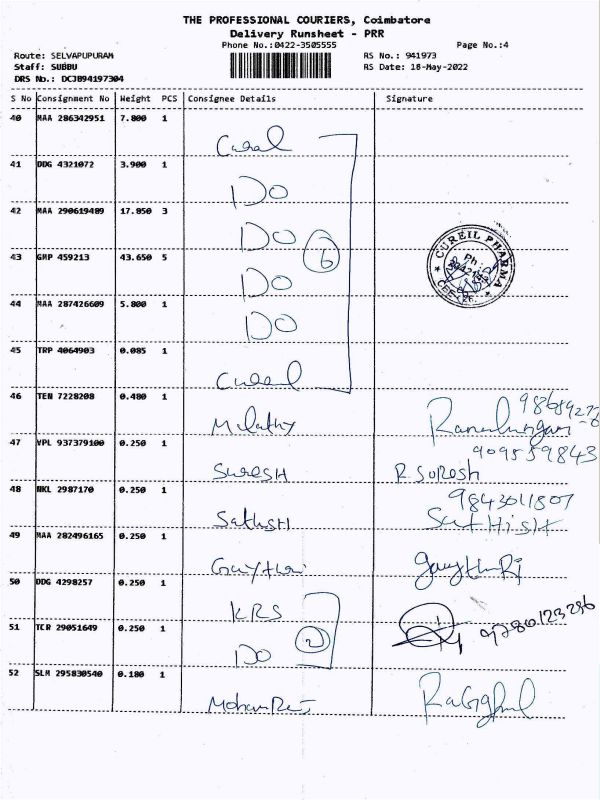 THE PROFESSIONAL COURIERS, Coimbatore
Delivery Runsheet - PRR
Phone No.:0422-3505555
Page No.:4
Route: SELVAPUPURAM
RS No.: 941973
Staff: SUBBU
RS Date: 18-May-2022
DRS No.: DCJB94197304
S No Consignment No Weight PCS Consignee Details Signature
40 MAA 286342951 7.800 1
41 DDG 4321072 3.900 1
Do
42 MAA 290619489 17.850 3
Do 6
43 GMP 459213 43.650 5
Do
CUREIL PHARMA
44 MAA 287426609 5.800 1
Do
45 TRP 4064903 0.085 1
46 TEN 7228208 0.480 1
47 VPL 937379100 0.250 1
9095559843
Suresh R. Suresh
48 NKL 2987170 0.250 1
9843011807
Sathish Sathish
49 MAA 282496165 0.250 1
50 DDG 4298257 0.250 1
KRS
51 TCR 29051649 0.250 1
Do 2
52 SLM 295830540 0.180 1